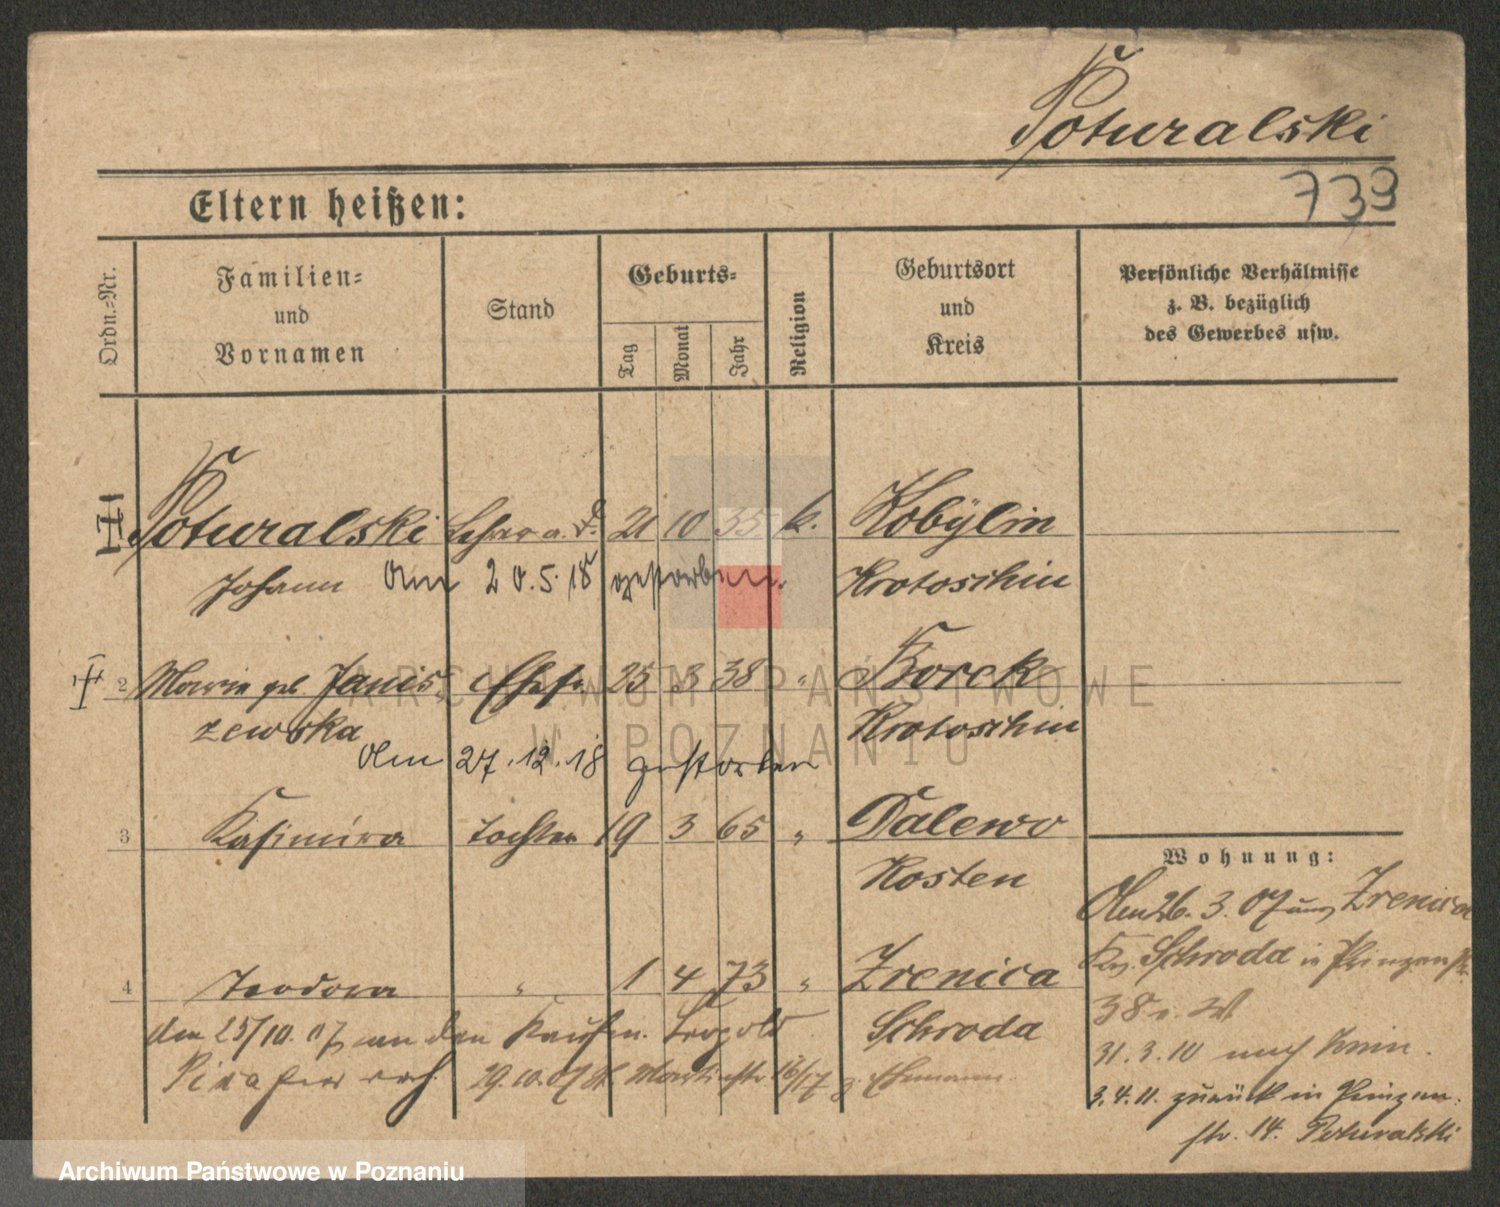 Poturalski
739
Eltern heißen:
Ordn.-Nr.
Familien-
und
Vornamen
Stand
Geburts-
Tag
Monat
Jahr
Religion
Geburtsort
und
Kreis
Persönliche Verhältnisse
z. B. bezüglich
des Gewerbes usw.
Poturalski Lehrer a. D. 21 10 35 k. Kobylin
Johann Am 20.5.18 gestorben. Krotoschin
2 Marie geb. Janis- Ehefr. 25 3 38 " Borek
zewska Krotoschin
Am 27.12.18 gestorben
3 Kasimira Tochter 19 3 65 " Dalewo
Kosten
4 Teodora " 1 4 73 " Zrenica
Schroda
den 25/10.07 an den Kaufm. Leopold
29.10.07 Martinstr 16/17 z. Ehemann
Wohnung:
Am 26.3.07 aus Zrenica
Krs. Schroda in Prinzenstr.
38
31.3.10 nach
3.4.11. zurück in Prinzen-
str. 14. Poturalski
ARCHIWUM PAŃSTWOWE
W POZNANIU
Archiwum Państwowe w Poznaniu